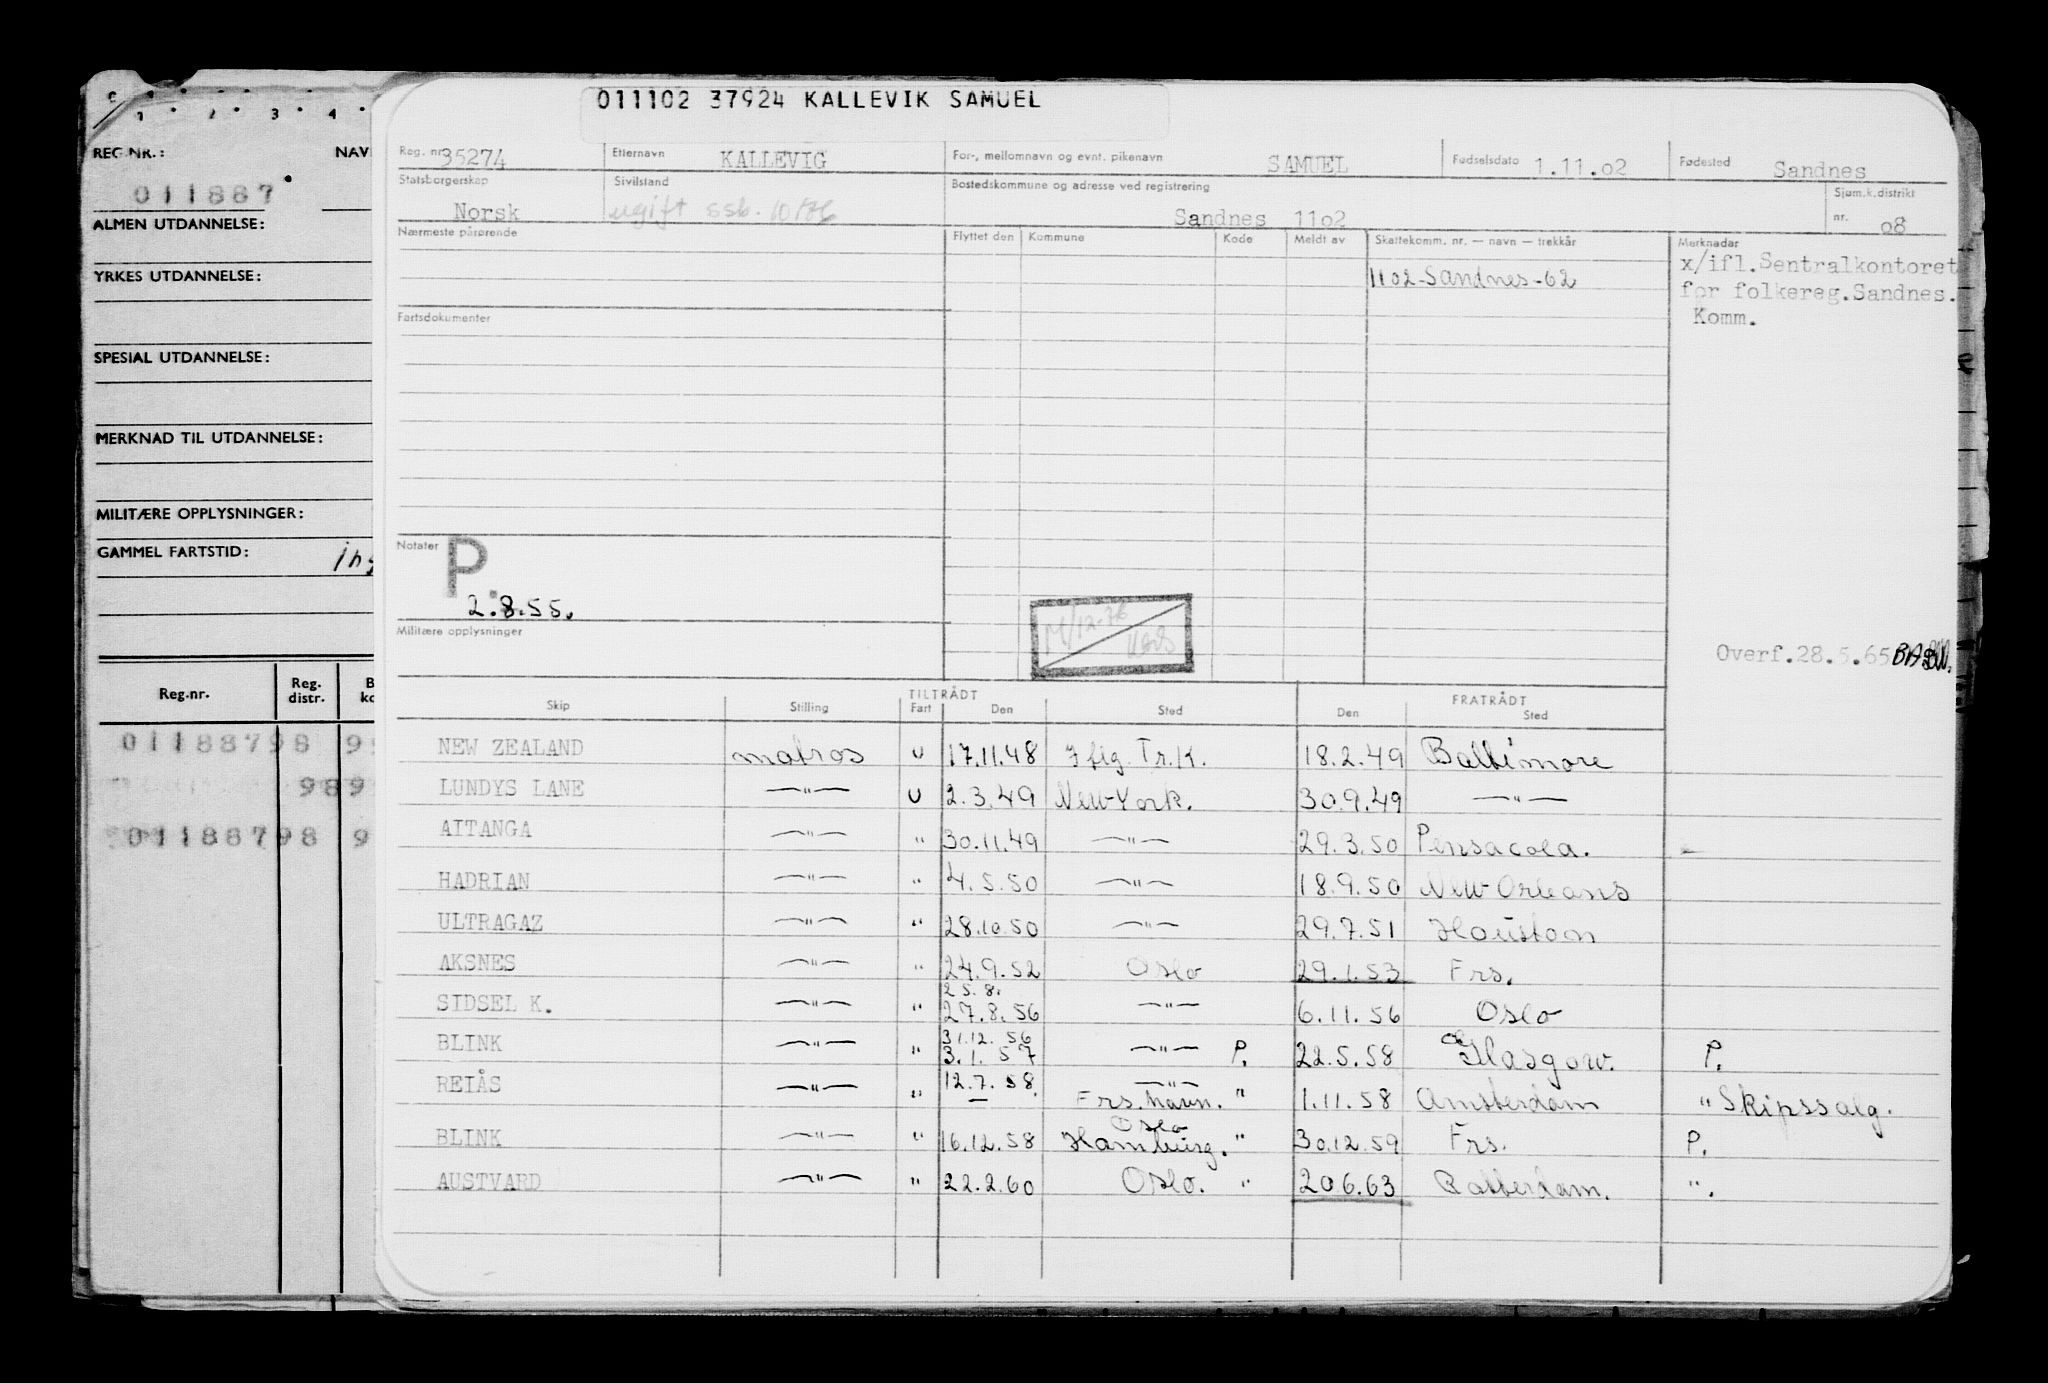 011102 37924 KALLEVIK SAMUEL
Reg. nr. 35274 Etternavn KALLEVIG For-, mellomnavn og evnt. pikenavn SAMUEL Fødselsdato 1.11.02 Fødested Sandnes
Statsborgerskap Norsk Sivilstand ugift ssb. 10/76 Bostedskommune og adresse ved registrering Sandnes 11o2 Sjøm.k.distrikt nr. o8
Nærmeste pårørende Flyttet den Kommune Kode Meldt av Skattekomm. nr. — navn — trekkår Merknader
1102-Sandnes-62
x/ifl.Sentralkontoret
for folkereg.Sandnes.
Komm.
Fartsdokumenter
Notater P.
2.8.55.
Militære opplysninger
12-76
Overf.28.5.65
TILTRÅDT FRATRÅDT
Skip Stilling Fart Den Sted Den Sted
NEW ZEALAND matros U 17.11.48 Iflg. Tr.K. 18.2.49 Baltimore
LUNDYS LANE —"— U 2.3.49 New-York. 30.9.49 —"—
AITANGA —"— " 30.11.49 —"— 29.3.50 Pensacola.
HADRIAN —"— " 4.5.50 —"— 18.9.50 New-Orleans
ULTRAGAZ —"— " 28.10.50 —"— 29.7.51 Houston
AKSNES —"— " 24.9.52 Oslo 29.1.53 Frs.
25.8.
SIDSEL K. —"— " 27.8.56 —"— 6.11.56 Oslo
31.12.56
BLINK —"— " 3.1.57 —"— P. 22.5.58 Glasgow. P.
REIÅS —"— " 12.7.58. —"—
— Frs. havn. " 1.11.58 Amsterdam " Skipssalg.
Oslo
BLINK —"— " 16.12.58 Hamburg. " 30.12.59 Frs. P.
AUSTVARD —"— " 22.2.60 Oslo. " 20.6.63 Rotterdam. ".
1 2 3 4
REG.NR.: NAV
011887
ALMEN UTDANNELSE:
YRKES UTDANNELSE:
SPESIAL UTDANNELSE:
MERKNAD TIL UTDANNELSE:
MILITÆRE OPPLYSNINGER:
GAMMEL FARTSTID:
Reg.nr. Reg. distr. B ko
01188798 9
989
01188798 9